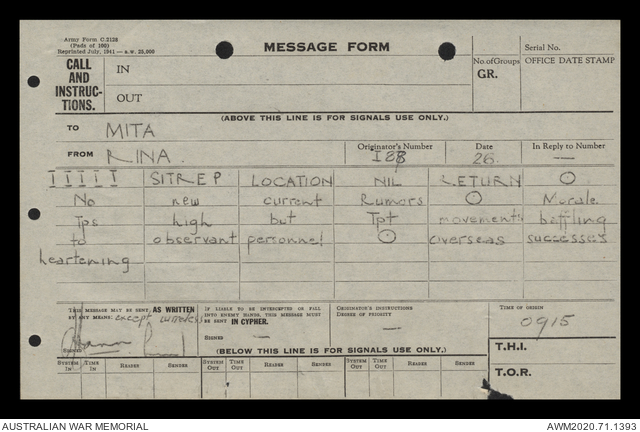 Army Form C.2128
(Pads of 100)
Reprinted July, 1941—s.w. 25,000
MESSAGE FORM
Serial No.
CALL AND INSTRUC-TIONS.
IN
OUT
No. of Groups
GR.
OFFICE DATE STAMP
(ABOVE THIS LINE IS FOR SIGNALS USE ONLY.)
TO MITA
FROM RINA.
Originator's Number
Date
26
In Reply to Number
—
IIIII SITREP LOCATION NIL RETURN O
No new current Rumors O Morale
Tps high but Tpt movements baffling
to observant personnel ⊙ overseas successes
heartening
THIS MESSAGE MAY BE SENT AS WRITTEN BY ANY MEANS. except wireless
SIGNED
IF LIABLE TO BE INTERCEPTED OR FALL INTO ENEMY HANDS, THIS MESSAGE MUST BE SENT IN CYPHER.
SIGNED —
ORIGINATOR'S INSTRUCTIONS
DEGREE OF PRIORITY
—
TIME OF ORIGIN
0915
T.H.I.
T.O.R.
(BELOW THIS LINE IS FOR SIGNALS USE ONLY.)
SYSTEM IN TIME IN READER SENDER SYSTEM OUT TIME OUT READER SENDER SYSTEM OUT TIME OUT READER SENDER
AUSTRALIAN WAR MEMORIAL
AWM2020.71.1393